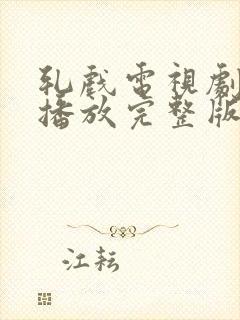 乳戲電視劇
播放完整版
江耘